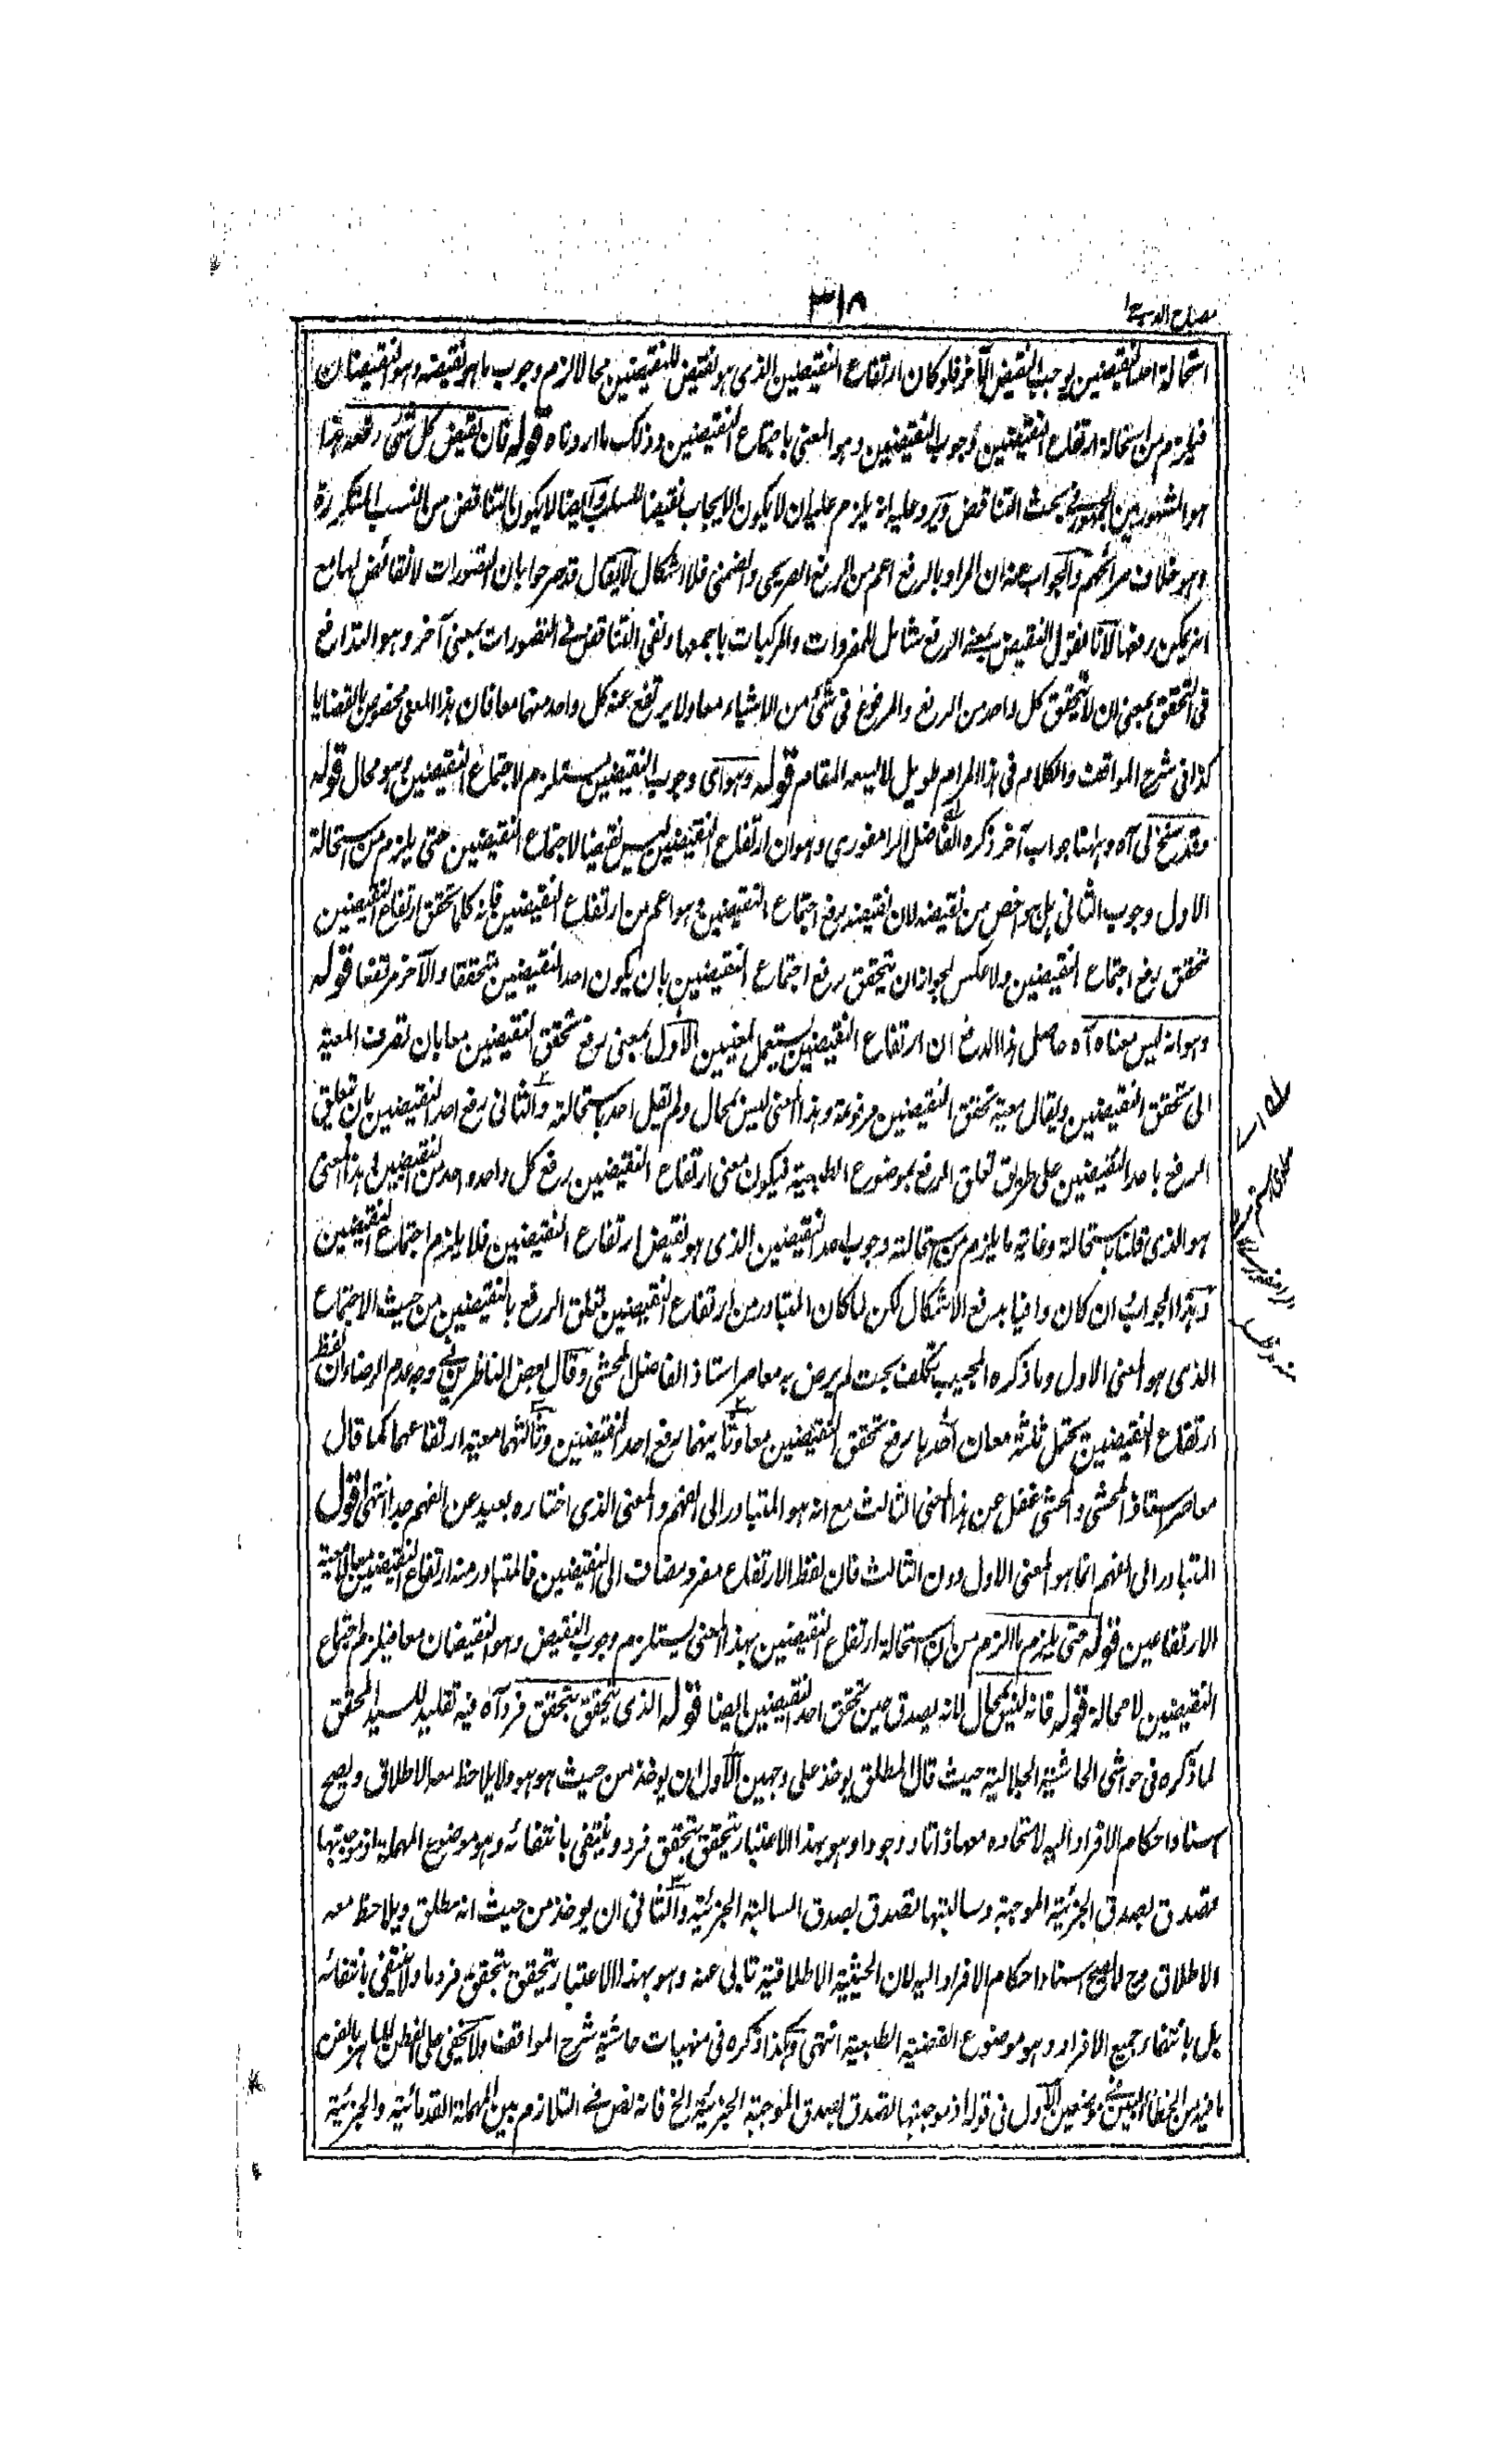 ٣١٨
مصباح الدجى
استحالة احد النقيضين يوجب النقيض الآخر فلو كان ارتفاع النقيضين الذى هو نقيض للنقيضين محالا لزم وجوب ما هو نقيضه وهو النقيضان
فيلزم من استحالة ارتفاع النقيضين وجوب النقيضين وهو المعنى باجتماع النقيضين وذلك ما اردناه قوله فان نقيض كل شئ رفعه هذا
هو المشهور بين الجمهور فى بحث التناقض ويرد عليه انه يلزم عليه ان لا يكون الايجاب نقيضا للسلب وايضا لا يكون التناقض من النسب المتكررة
وهو خلاف صرائحهم والجواب عنه ان المراد بالرفع اعم من الرفع الصريحى والضمنى فلا اشكال لا يقال قد صرحوا بان التصورات لا نقائض لها مع
انه يمكن رفعها لانا نقول النقيض بمعنى الرفع شامل للمفردات والمركبات باجمعها ونفى التناقض فى التصورات بمعنى آخر وهو التدافع
فى التحقق بمعنى ان لا يتحقق كل واحد من الرفع والمرفوع فى شئ من الاشياء معا ولا يرتفع عنه كل واحد منهما معا فان هذا المعنى مخصوص بالقضايا
كذا فى شرح المواقف والكلام فى هذا المرام طويل لا يسعه المقام قوله وهو اى وجوب النقيضين مستلزم لاجتماع النقيضين وهو محال قوله
وقد سنح لى آه وههنا جواب آخر ذكره الفاضل الرامفورى وهو ان ارتفاع النقيضين ليس نقيضا لاجتماع النقيضين حتى يلزم من استحالة
الاول وجوب الثانى بل هو اخص من نقيضه لان نقيضه رفع اجتماع النقيضين وهو اعم من ارتفاع النقيضين فانه كلما تحقق ارتفاع النقيضين
تحقق رفع اجتماع النقيضين ولا عكس لجواز ان يتحقق رفع اجتماع النقيضين بان يكون احد النقيضين متحققا والآخر مرتفعا قوله
وهو انه ليس معناه آه حاصل هذا الدفع ان ارتفاع النقيضين يستعمل لمعنيين الاول بمعنى رفع تحقق النقيضين معا بان تصرف المعية
الى تحقق النقيضين ويقال معية تحقق النقيضين مرفوعة وهذا المعنى ليس بمحال ولم يقل احد باستحالته والثانى رفع احد النقيضين بان تعلق
الرفع باحد النقيضين على طريق تعلق الرفع بموضوع الطبعية فيكون معنى ارتفاع النقيضين رفع كل واحد واحد من النقيضين وهذا المعنى
هو الذى قلنا باستحالته وغاية ما يلزم من استحالته وجوب احد النقيضين الذى هو نقيض ارتفاع النقيضين فلا يلزم اجتماع النقيضين
وهذا الجواب ان كان وافيا بدفع الاشكال لكن لما كان المتبادر من ارتفاع النقيضين تعلق الرفع بالنقيضين من حيث الاجتماع
الذى هو المعنى الاول وما ذكره المجيب تكلف بحت لم يرض به معاصر استاذ الفاضل المحشى وقال بعض الناظرين فى وجه عدم الرضاء ان لفظ
ارتفاع النقيضين يحتمل ثلثة معان احدها رفع تحقق النقيضين معا وثانيهما رفع احد النقيضين وثالثهما معية ارتفاعهما كما قال
معاصر استاذ المحشى والمحشى غفل عن هذا المعنى الثالث مع انه هو المتبادر الى الفهم والمعنى الذى اختاره بعيد عن الفهم جدا انتهى اقول
المتبادر الى الفهم انما هو المعنى الاول دون الثالث فان لفظ الارتفاع مفرد مضاف الى النقيضين فالمتبادر منه ارتفاع النقيضين معا لا معية
الارتفاعين قوله حتى يلزم ما الزم من ان استحالة ارتفاع النقيضين بهذا المعنى يستلزم وجوب النقيض وهو النقيضان معا فيلزم اجتماع
النقيضين لا محالة قوله فانه ليس بمحال لانه يصدق حين تحقق احد النقيضين ايضا قوله الذى يتحقق بتحقق فرد آه فيه تقليد للسيد المحقق
لما ذكره فى حواشى الحاشية الجلالية حيث قال المطلق يوخذ على وجهين الاول ان يوخذ من حيث هو هو ولا يلاحظ معه الاطلاق ويصح
اسناد احكام الافراد اليه لاتحاده معها ذاتا ووجودا وهو بهذا الاعتبار يتحقق بتحقق فرد وينتفى بانتفائه وهو موضوع المهملة اذ موجبتها
تصدق بصدق الجزئية الموجبة وسالبتها تصدق بصدق السالبة الجزئية والثانى ان يوخذ من حيث انه مطلق ويلاحظ معه
الاطلاق وح لا يصح اسناد احكام الافراد اليه لان الحيثية الاطلاقية تابى عنه وهو بهذا الاعتبار يتحقق بتحقق فرد ما ولا ينتفى بانتفائه
بل بانتفاء جميع الافراد وهو موضوع القضية الطبعية انتهى وهكذا ذكره فى منهيات حاشية شرح المواقف ولا يخفى على الفطن الماهر بالفن
ما فيه من الخطأ البين فى موضعين الاول فى قوله اذ موجبتها تصدق بصدق الموجبة الجزئية الخ فانه نص فى التلازم بين المهملة القدمائية والجزئية